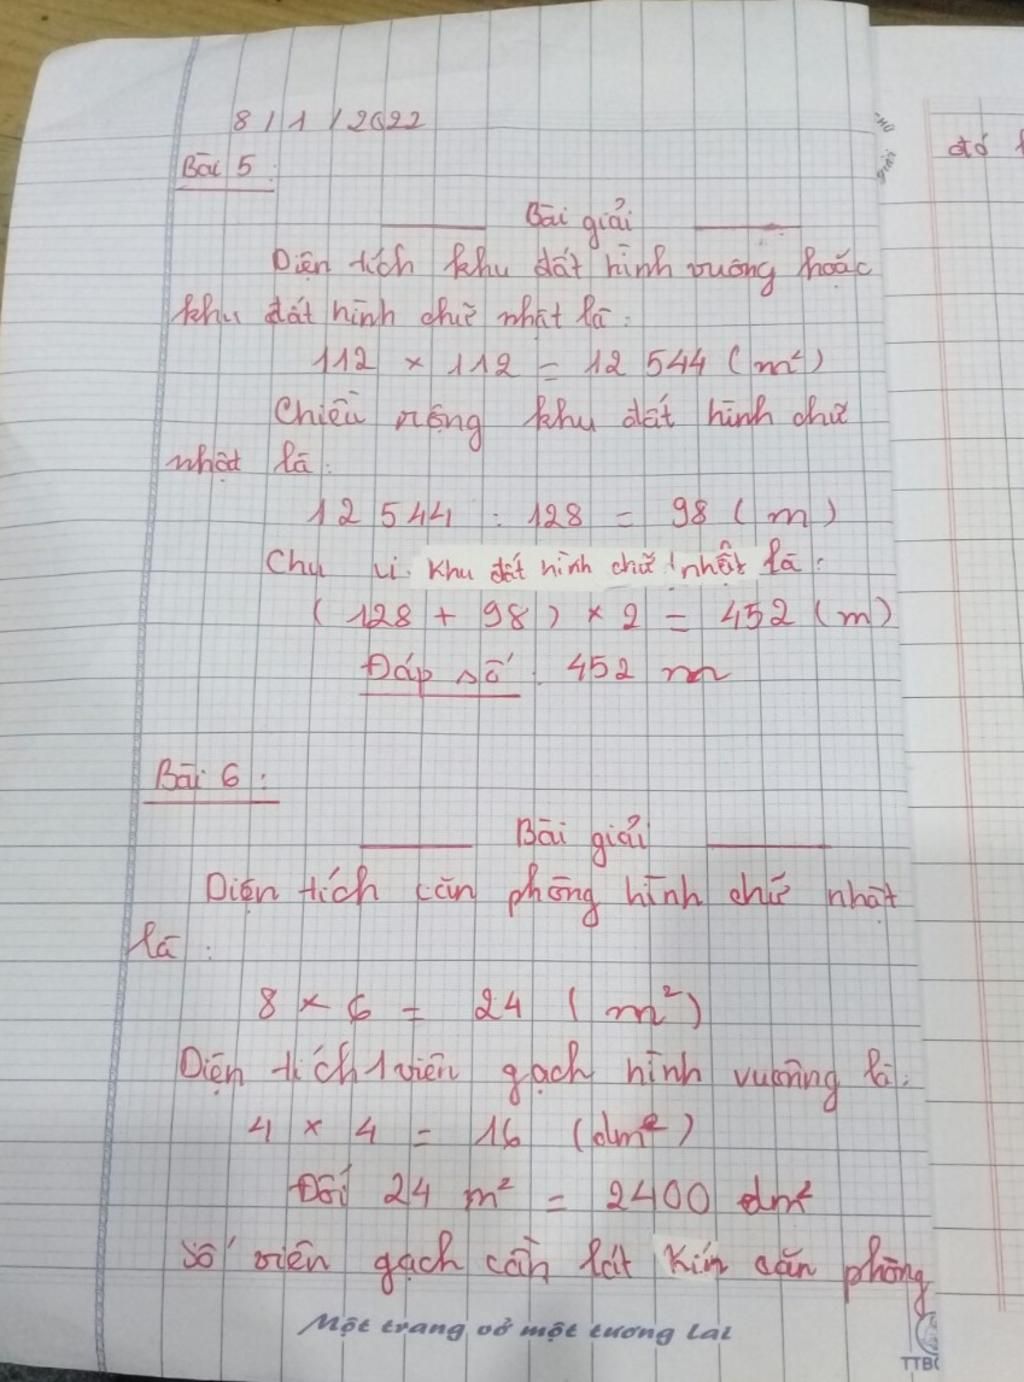 8/1/2022
Bài 5:
Bài giải
Diện tích khu đất hình vuông hoặc
khu đất hình chữ nhật là:
112 × 112 = 12 544 (m²)
Chiều rộng khu đất hình chữ
nhật là:
12 544 : 128 = 98 (m)
Chu vi khu đất hình chữ nhật là:
(128 + 98) × 2 = 452 (m)
Đáp số: 452 m
Bài 6:
Bài giải
Diện tích căn phòng hình chữ nhật
là:
8 × 6 = 24 (m²)
Diện tích 1 viên gạch hình vuông là:
4 × 4 = 16 (dm²)
Đổi 24 m² = 2400 dm²
Số viên gạch cần lát kín căn phòng
Một trang vở một tương lai
TTB
đó